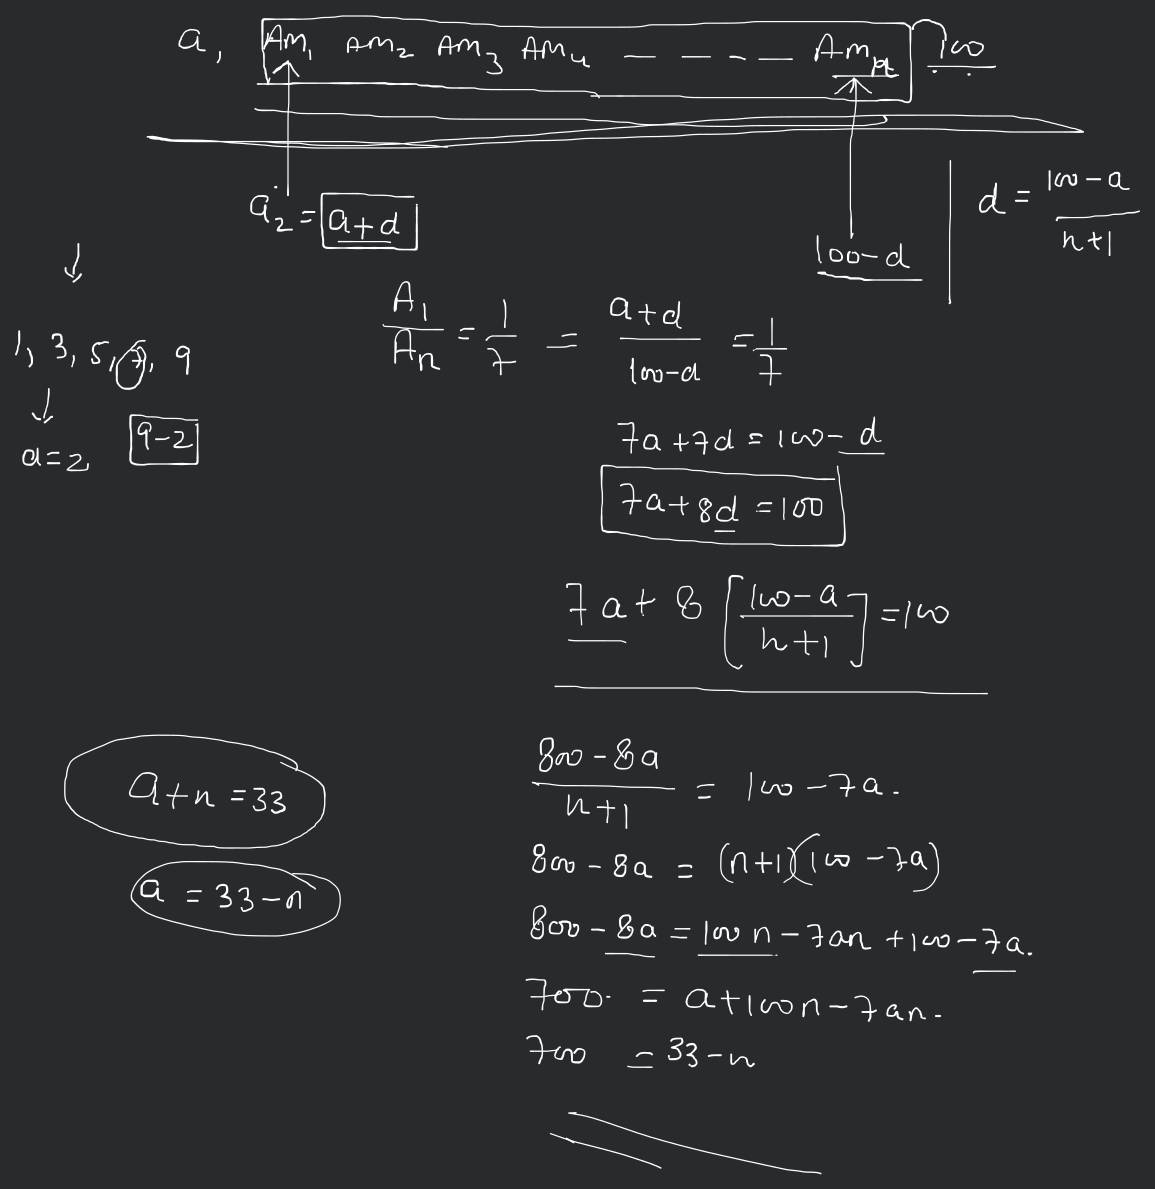 a, AM₁ AM₂ AM₃ AM₄ - - - - AMn 100
a₂ = a+d
100-d
d = (100-a)/(n+1)
1, 3, 5, 7, 9
d=2, 9-2
A₁/An = 1/7 = (a+d)/(100-d) = 1/7
7a+7d = 100-d
7a+8d = 100
7a + 8[(100-a)/(n+1)] = 100
(800-8a)/(n+1) = 100-7a.
800-8a = (n+1)(100-7a)
800-8a = 100n-7an+100-7a.
700. = a+100n-7an.
700 = 33-n
a+n=33
a = 33-n